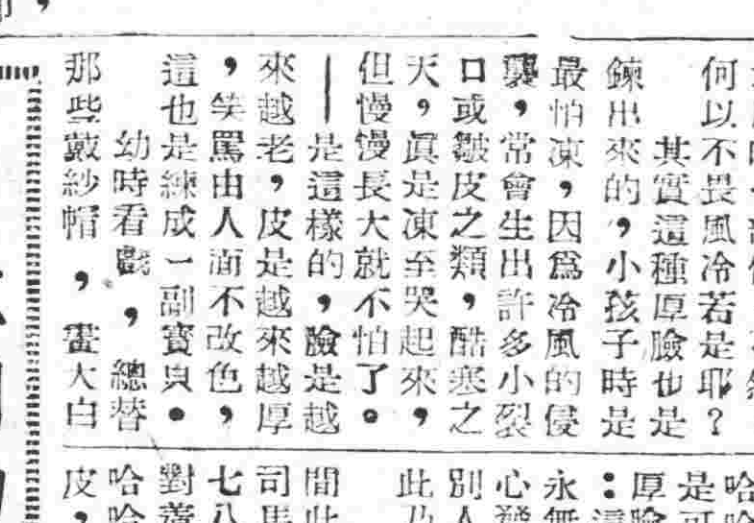 何以不畏風冷若是耶？
其實這種厚臉也是
鍊出來的，小孩子時是
最怕凍，因爲冷風的侵
襲，常會生出許多小裂
口或皺皮之類，酷寒之
天，眞是凍至哭起來，
但慢慢長大就不怕了。
──是這樣的，臉是越
來越老，皮是越來越厚
，笑罵由人面不改色，
這也是練成一副寶貝。
幼時看戲，總替
那些戴紗帽，畫大白
哈
是
厚
：
永無
心
別人
此乃
間此
司馬
七八
對着
哈哈
皮，